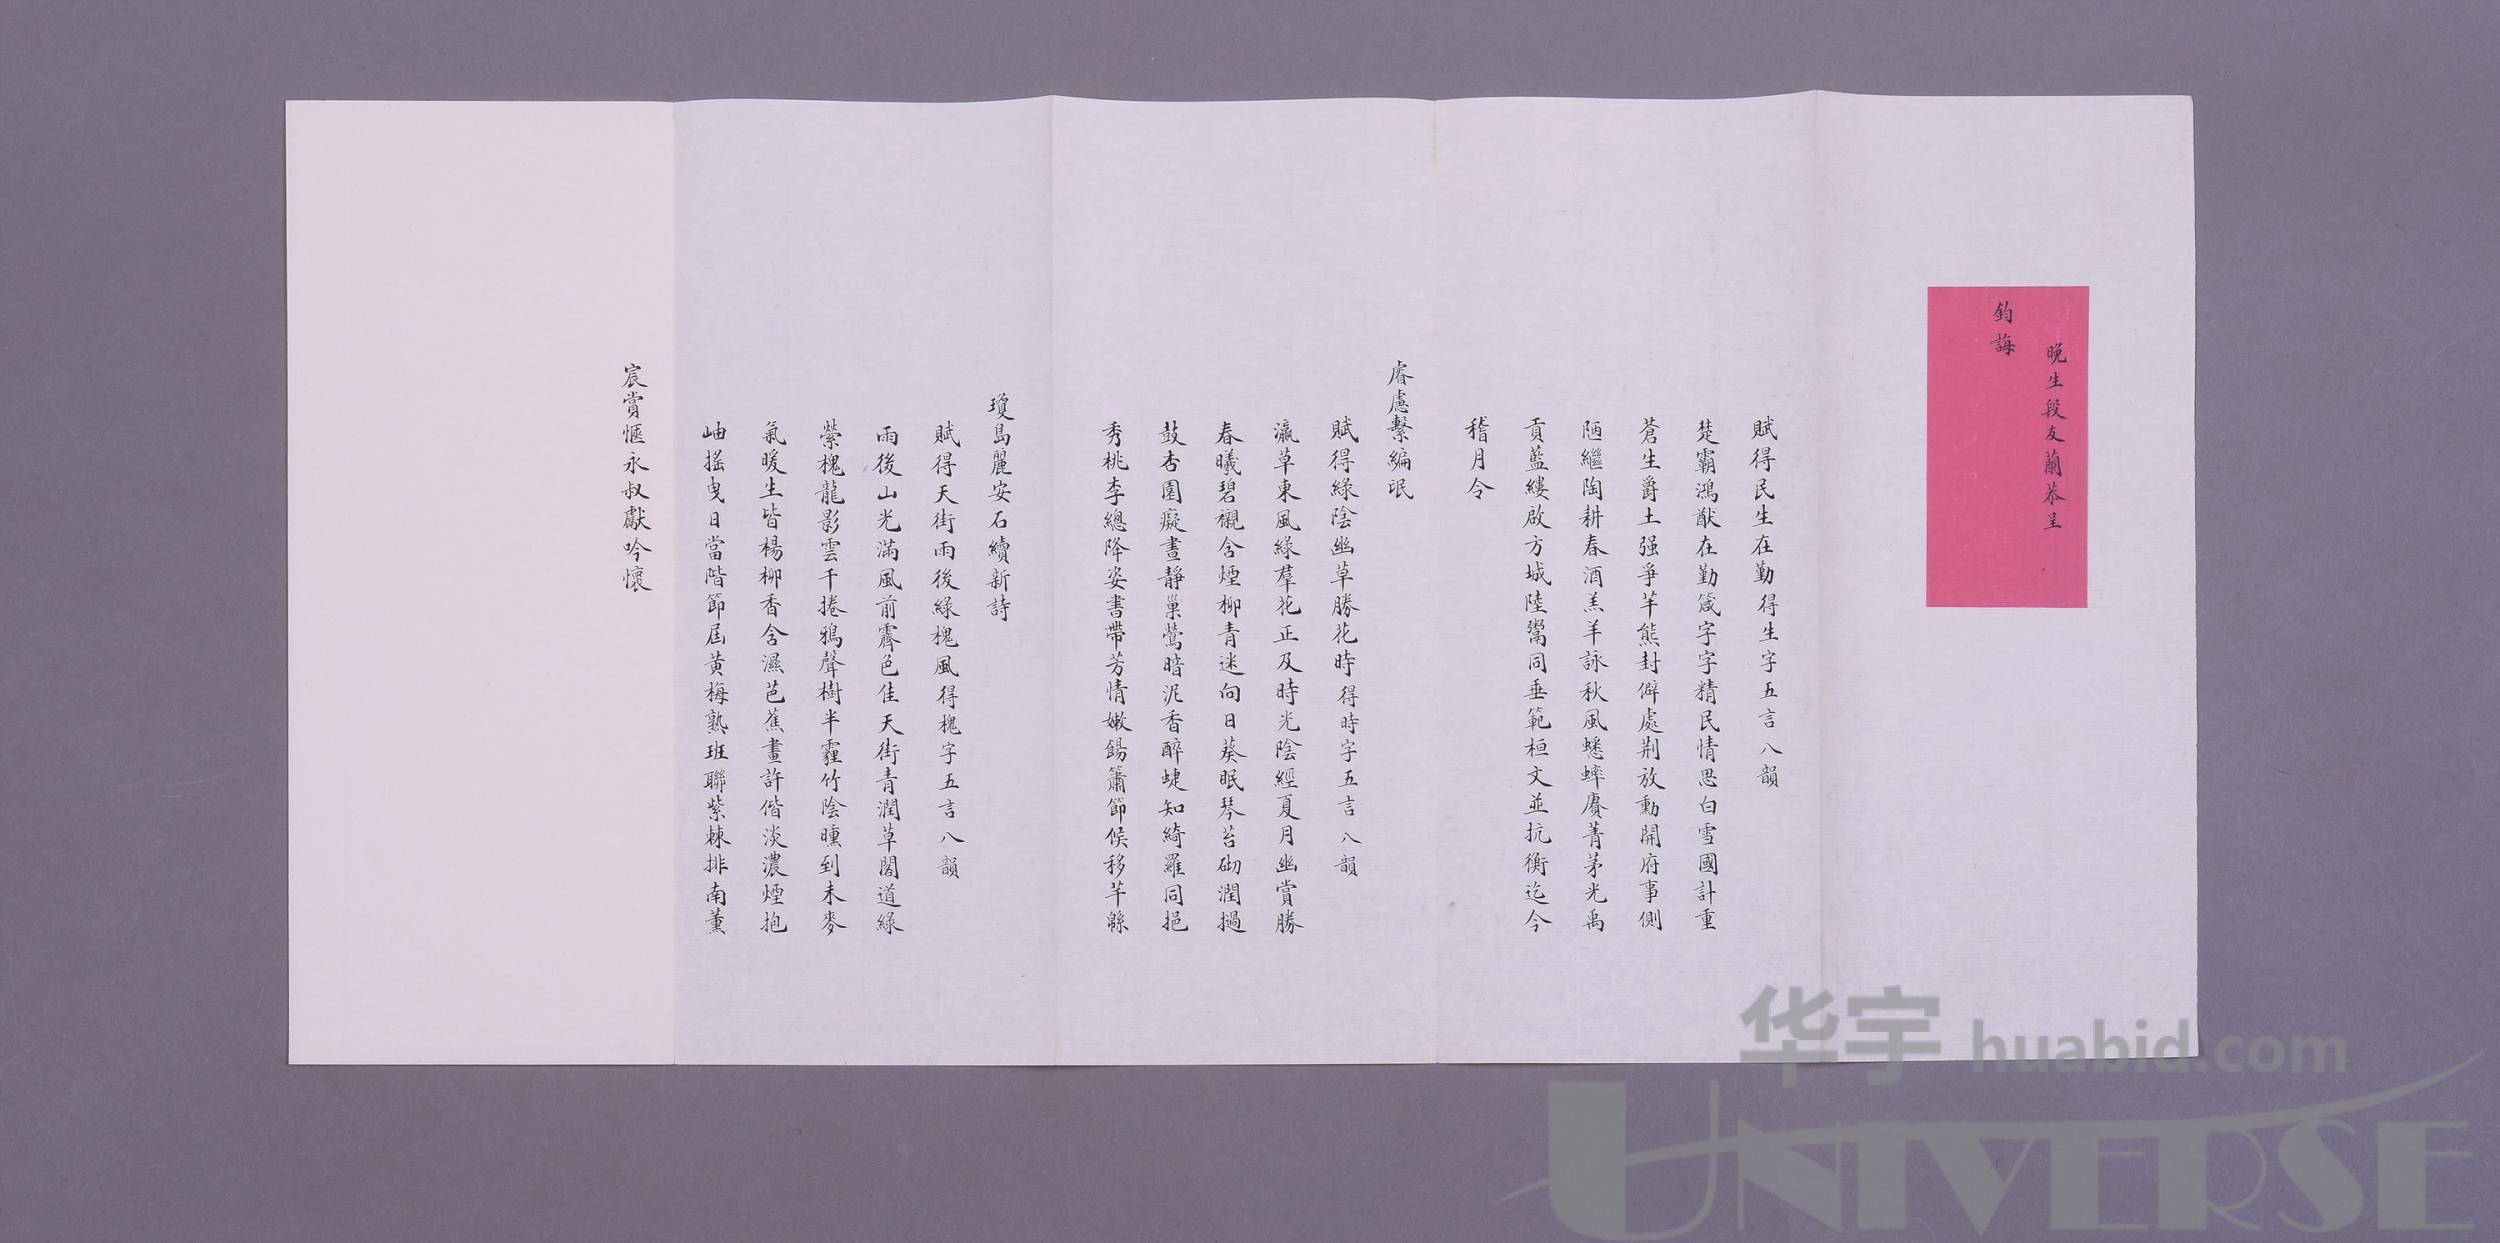 晚生段友蘭恭呈
鈞誨
賦得民生在勤得生字五言八韻
楚霸鴻猷在勤箴字字精民情思白雪國計重
蒼生爵土强爭芊熊封僻處荆放勳開府事側
陋繼陶耕春酒羔羊詠秋風蟋蟀賡菁茅光禹
貢藍縷啟方城陸鬻同垂範桓文並抗衡迄今
稽月令
睿慮繫編氓
賦得綠陰幽草勝花時得時字五言八韻
瀛草東風綠羣花正及時光陰經夏月幽賞勝
春曦碧襯含煙柳青迷向日葵眠琴苔砌潤撾
鼓杏園癡晝靜巢鶯暗泥香醉蜨知綺羅同挹
秀桃李總降姿書帶芳情嫩餳簫節候移芊緜
瓊島麗安石續新詩
賦得天街雨後綠槐風得槐字五言八韻
雨後山光滿風前霽色佳天街青潤草閣道綠
縈槐龍影雲千捲鴉聲樹半霾竹陰曛到未麥
氣暖生皆楊柳香含濕芭蕉畫許偕淡濃煙抱
岫搖曳日當階節屆黃梅熟班聯紫棘排南薰
宸賞愜永叔獻吟懷
华宇 huabid.com
UNIVERSE